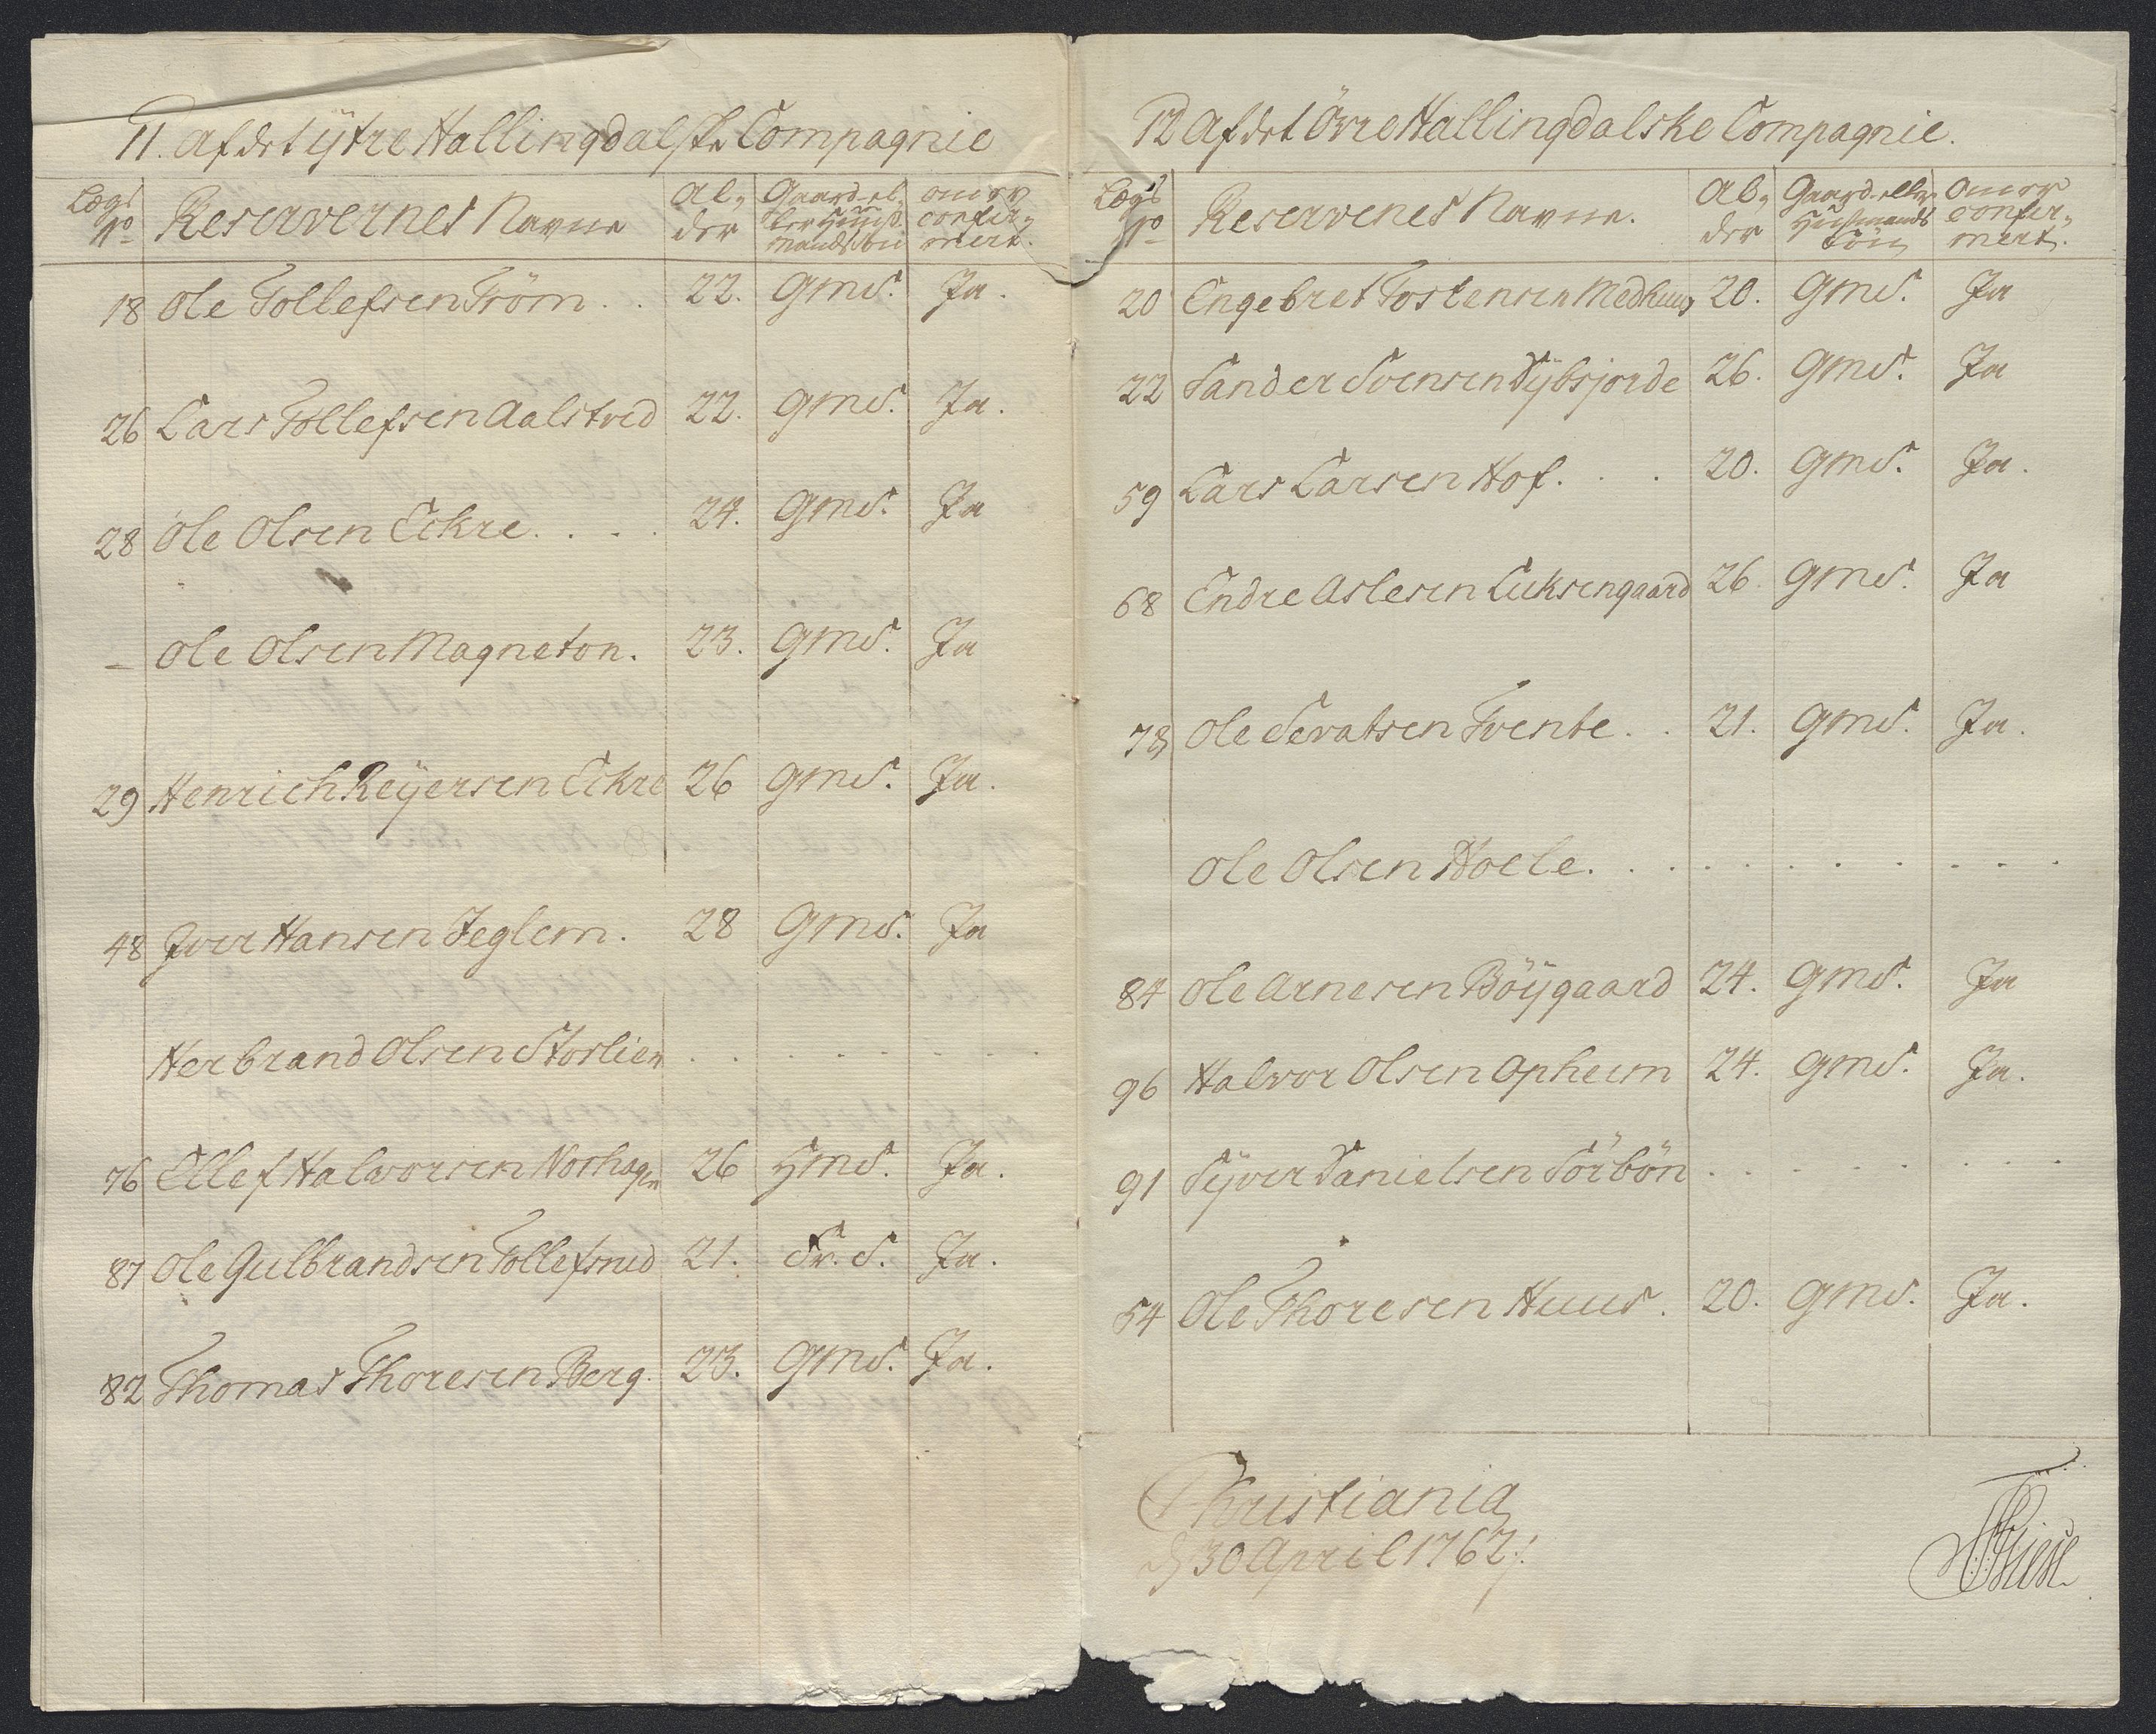 11. af det ÿtre Hallingdalske Compagnie
Lægs No | Reservernes Navne | Al, der | Gaard-el, ler Huus, mands Sön | om er confir, mert.
18 Ole Tollefsen Tröm . . 22. Gmd S. Ja.
26 Lars Tollefsen Aalstved 22. Gmd S. Ja.
28 Ole Olsen Eckre. . . . 24. Gmd S. Ja
– Ole Olsen Magneton. 23. Gmd S. Ja
29 Henrich Reÿersen Eckre 26 Gmd S. Ja.
48 Iver Hansen Jeglem. 28 Gmd S. Ja
Herbrand Olsen Storlien . . . . . . . . .
76 Ellef Halvorsen Norhagen 26 Hmd S. Ja.
87 Ole Gulbrandsen Tollefsrud 21. Sr. S. Ja.
82 Thomas Thoresen Berg. 23. Gmd S. Ja.
12 af det övre Hallingdalske Compagnie.
Lægs No | Reservenes Navne. | Al, der | Gaard-eller Husmands Sön | Om er confir, mert.
20 Engebret Tostensen Medhuus 20. Gmd S. Ja
22 Sander Svensen Dÿbsjorde 26. Gmd S. Ja
59 Lars Larsen Hof. . . 20. Gmd S. Ja.
68 Endre Aslesen Luksengaard 26 Gmd S. Ja
78 Ole Sevatsen Tvente. . 21. Gmd S. Ja.
Ole Olsen Hoele. . . . . . . . . . .
84 Ole Arnesen Böÿgaard 24. Gmd S. Ja
96 Halvor Olsen Opheim 24. Gmd S. Ja.
91 Sÿver Danielsen Sörbön . . . . . . . . .
54 Ole Thoresen Huus. 20. Gmd S. Ja.
Christiania
d 30 April 1762.